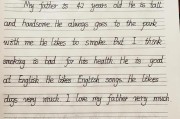 My father is 42 years old. He is tall
and handsome. He always goes to the park
with me. He likes to smoke. But I think
smoking is bad for his health. He is good
at English. He likes English songs. He likes
dogs very much. I love my father very much.